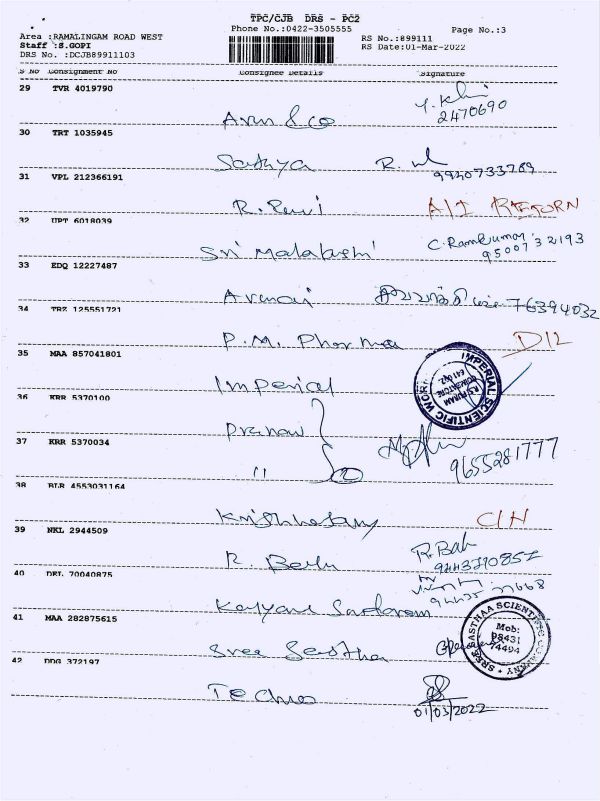 TPC/CJB DRS - PC2
Phone No.:0422-3505555
Page No.:3
Area :RAMALINGAM ROAD WEST
RS No.:899111
Staff :S.GOPI
RS Date:01-Mar-2022
DRS No. :DCJB89911103
S No Consignment No Consignee Details Signature
29 TVR 4019790
Arun & co 2470690
30 TRT 1035945
Sathya R. 9940733789
31 VPL 212366191
R. A/I RETURN
32 UPT 6018039
Sri C. Ramkumar 9500732193
33 EDQ 12227487
76394032
34 TRZ 125551721
P.M. Pharma D/L
35 MAA 857041801
Imperial IMPERIAL SCIENTIFIC R.S PURAM COIMBATORE 641 002.
36 KRR 5370100
Pranav
37 KRR 5370034
" 9655281777
38 BLR 4553031164
C/H
39 NKL 2944509
R. R. Bab
40 DEL 70040875
Kalyani Sundaram
41 MAA 282875615
Sree Sastha SREE SASTHAA SCIENTIFIC COMPANY Mob: 98431 74494
42 DDG 372197
Techno
01/03/2022